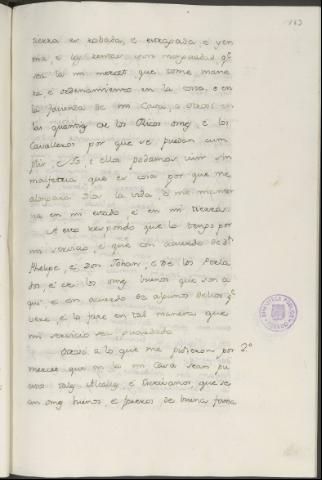 tierra es robada, e estragada, e yer
ma, e las rentas son menguadas, q.e
sea la mi merced que tome mane
ra, e ordenamiento en la costa, e en
la facienda de mi Casa, e otrosi en
las quantias de los Ricos omes, e los
Cavalleros por que se puedan cum
plir, e Yo, e ellos podamos vivir sin
malfetria, que es cosa por que me
alongara Dios la vida, e me manter
na en mi estado, e en mi tierras
A esto respondo que lo tengo por
mi servicio, e que con acuerdo de D.n
Phelipe, e Don Johan, e de los Perla
dos, e de los omes buenos que son a
qui e con acuerdo de algunos dellos q.e
vere, e lo fare en tal manera que
mi servicio sea guardado
Otrosi a lo que me pidieron por 2.a
merced que en la mi Casa sean pu
estos tales Alcalles, e Escrivanos que se
an omes buenos, e fueros, de buena fama